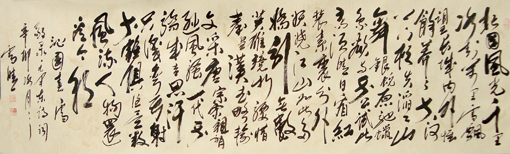 北国风光千里
冰封万里雪飘
望长城内外惟
馀莽莽大河
上下顿失滔滔山
舞银蛇原驰蜡
象欲与天公试比
高须晴日看红
装素裹分外
妖娆江山如此多
娇引无数
英雄竞折腰惜
秦皇汉武略输
文采唐宗宋祖稍
逊风骚一代天
骄成吉思汗
只识弯弓射
大雕俱往矣数
风流人物还
看今朝
沁园春雪
毛泽东诗词
辛卯